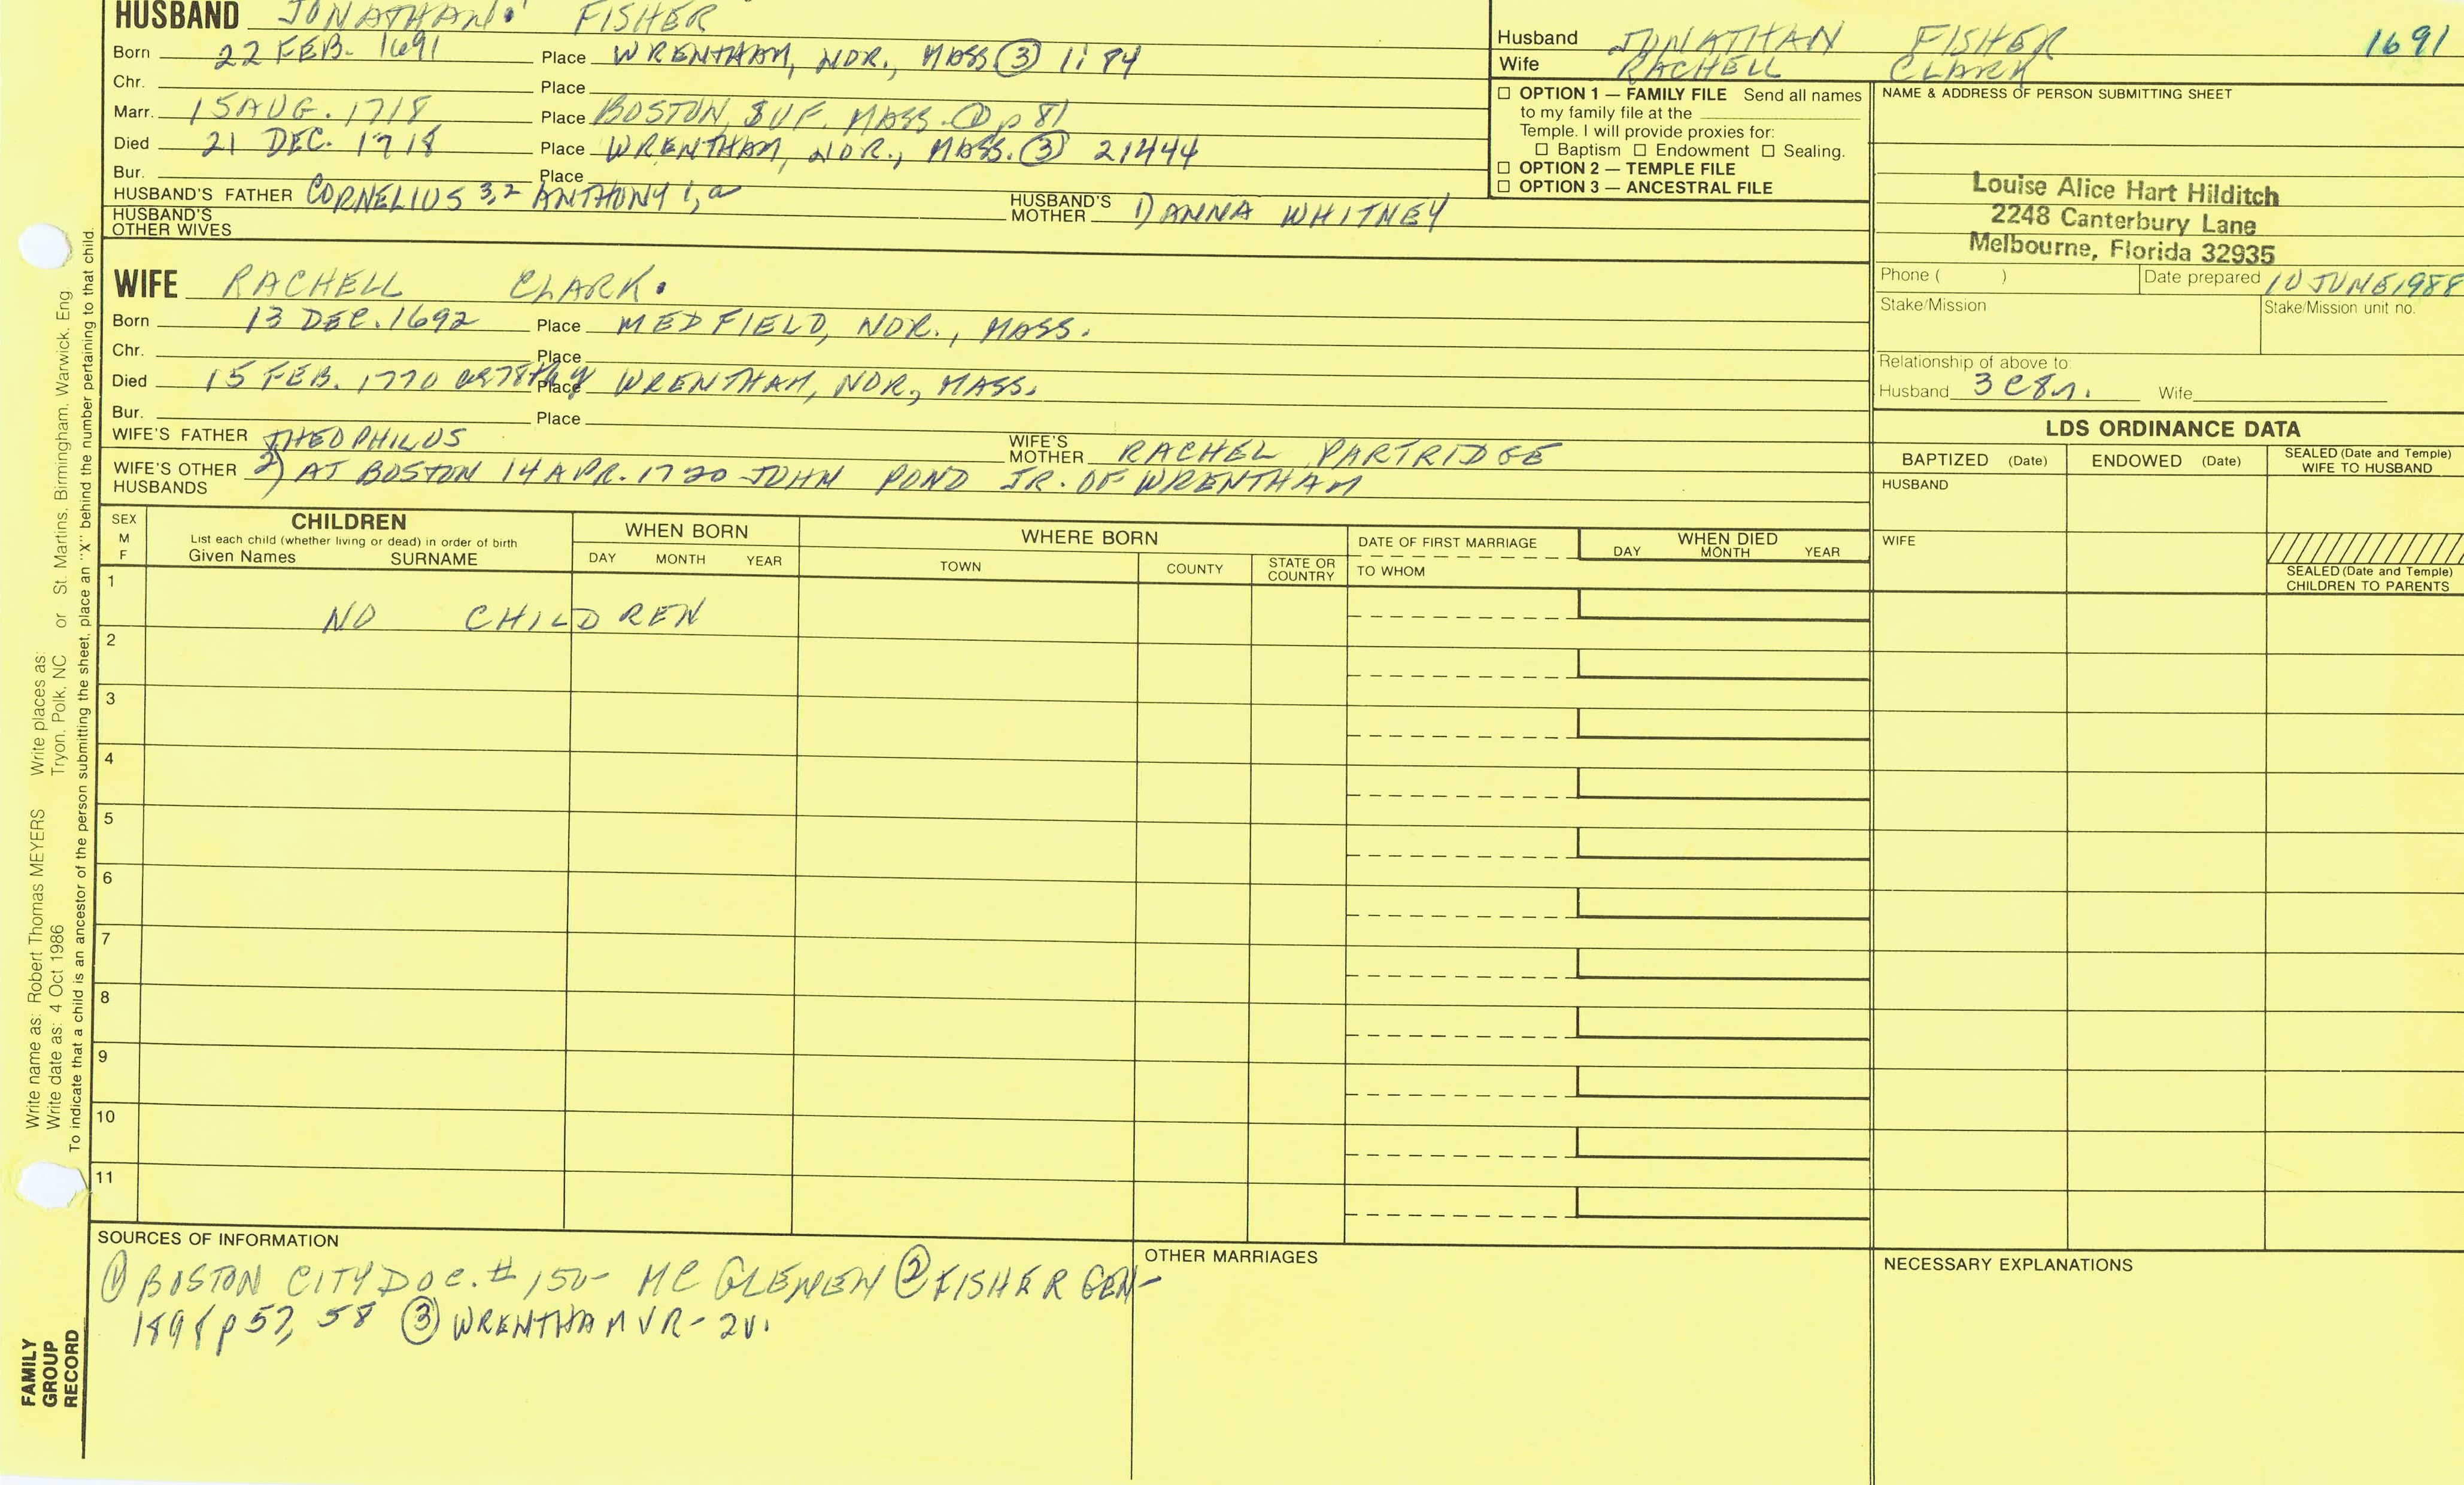 HUSBAND JONATHAN. FISHER
Born 22 FEB. 1691 Place WRENTHAM, NOR., MASS ③ 1:84
Chr. Place
Marr. 15 AUG. 1718 Place BOSTON, SUF. MASS. ① p 81
Died 21 DEC. 1718 Place WRENTHAM, NOR., MASS. ③ 2:444
Bur. Place
HUSBAND'S FATHER CORNELIUS 3,2 ANTHONY 1, a HUSBAND'S MOTHER 1) ANNA WHITNEY
HUSBAND'S OTHER WIVES
Husband JONATHAN FISHER 1691
Wife RACHELL CLARK
☐ OPTION 1 — FAMILY FILE Send all names
to my family file at the
Temple. I will provide proxies for:
☐ Baptism ☐ Endowment ☐ Sealing.
☐ OPTION 2 — TEMPLE FILE
☐ OPTION 3 — ANCESTRAL FILE
NAME & ADDRESS OF PERSON SUBMITTING SHEET
Louise Alice Hart Hilditch
2248 Canterbury Lane
Melbourne, Florida 32935
Phone ( ) Date prepared 10 JUNE 1988
Stake/Mission Stake/Mission unit no.
Relationship of above to:
Husband 3 C 8 r. Wife
WIFE RACHELL CLARK.
Born 13 DEC. 1692 Place MEDFIELD, NOR., MASS.
Chr. Place
Died 15 FEB. 1770 Place WRENTHAM, NOR., MASS.
Bur. Place
WIFE'S FATHER THEOPHILUS WIFE'S MOTHER RACHEL PARTRIDGE
WIFE'S OTHER HUSBANDS 2) AT BOSTON 14 APR. 1720 JOHN POND JR. OF WRENTHAM
LDS ORDINANCE DATA
BAPTIZED (Date) ENDOWED (Date) SEALED (Date and Temple) WIFE TO HUSBAND
HUSBAND
WIFE
SEALED (Date and Temple) CHILDREN TO PARENTS
SEX M F
CHILDREN
List each child (whether living or dead) in order of birth
Given Names SURNAME
WHEN BORN
DAY MONTH YEAR
WHERE BORN
TOWN COUNTY STATE OR COUNTRY
DATE OF FIRST MARRIAGE
TO WHOM
WHEN DIED
DAY MONTH YEAR
1 NO CHILDREN
2
3
4
5
6
7
8
9
10
11
SOURCES OF INFORMATION
① BOSTON CITY DOC. # 150- MC GLENEN ② FISHER GEN-
1898 p 57, 58 ③ WRENTHAM VR- 2V.
OTHER MARRIAGES
NECESSARY EXPLANATIONS
Write name as: Robert Thomas MEYERS Write places as: St. Martins, Birmingham, Warwick, Eng
Write date as: 4 Oct 1986 Tryon, Polk, NC or
To indicate that a child is an ancestor of the person submitting the sheet, place an "X" behind the number pertaining to that child.
FAMILY
GROUP
RECORD